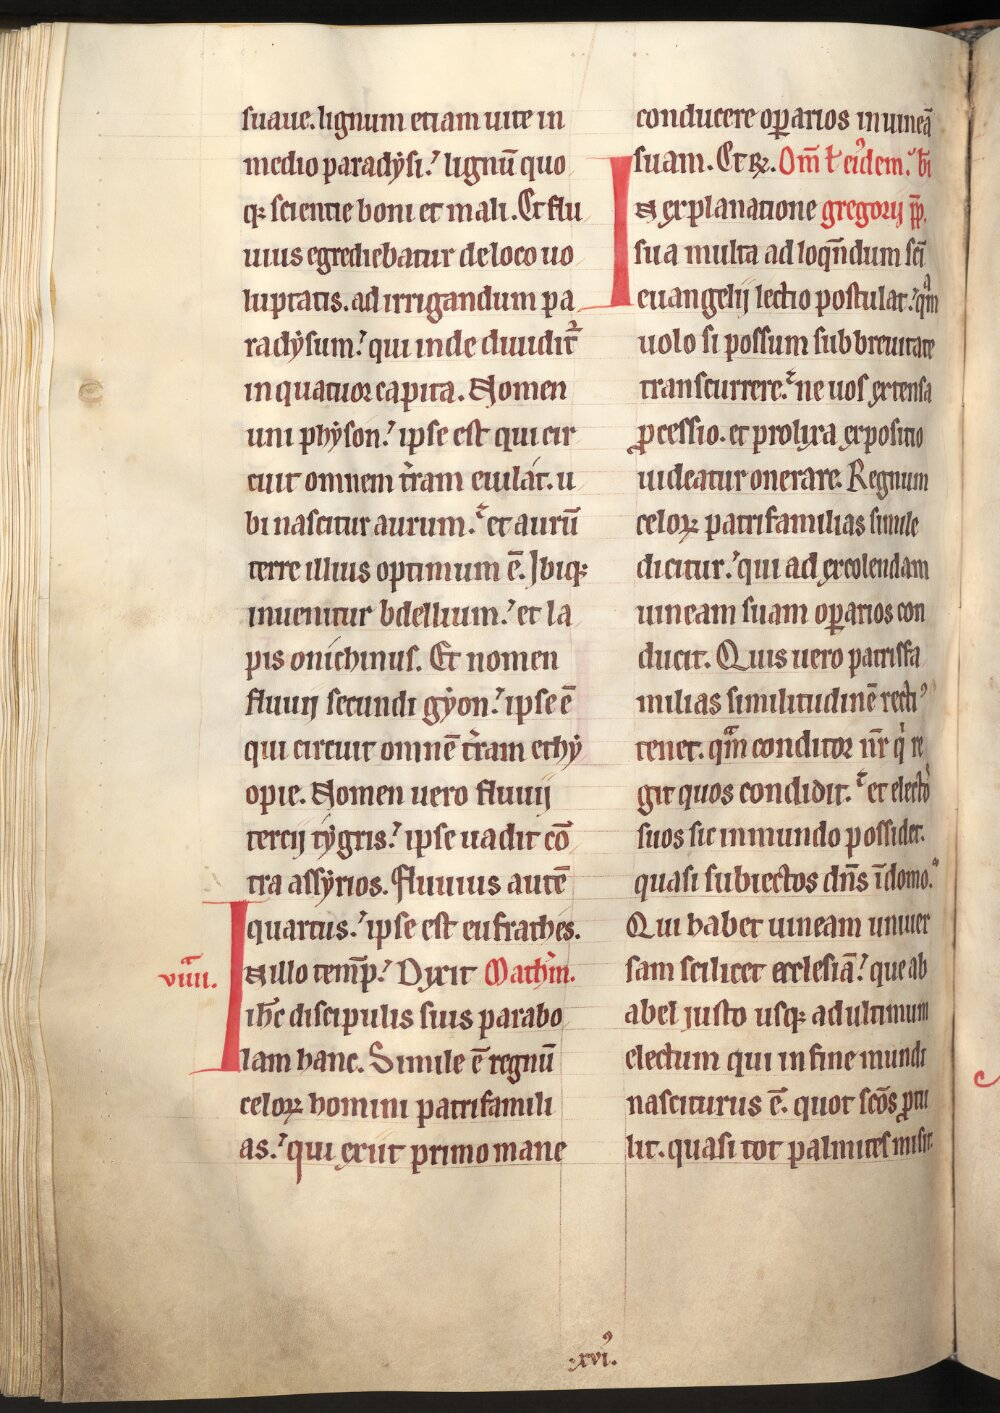 suaue. lignum etiam uite in
medio paradẏsi.' lignū quo
qꝫ scientie boni et mali. Et flu
uius egrediebatur de loco uo
luptatis. ad irrigandum pa
radẏsum.' qui inde diuidit᷑
in quatuor capita. Nomen
uni phẏson.' ipse est qui cir
cuit omnem t̓ram euilát. u
bi nascitur aurum.' et aurū
terre illius optimum ē. Jbiqꝫ
inuenitur bdellium.' et la
pis onichinus. Et nomen
fluuij secundi gẏon.' ipse ē
qui circuit omnē t̓ram ethẏ
opie. Nomen uero fluuij
tercij tẏgris.' ipse uadit cō
tra assẏrios. Fluuius autē
quartus.' ipse est eufrathes.
viiii. IN illo temp̄.' Dixit Math̓m.
ih̄c discipulis suis parabo
lam hanc. Simile ē regnū
celoꝝ homini patrifamili
as.' qui exiit primo mane
conducere oꝑarios in uineā
suam. Et ꝶ. Om̄ ł eiꝰdem.' b̄i
IN explanatione gregorij p̄p.
sua multa ad loq̄ndum sc̄i
euangelij lectio postulat.' qᵃm
uolo si possum sub breuitate
transcurrere.' ne uos extensa
ꝓcessio. et prolixa expositio
uideatur onerare. Regnum
celoꝝ patrifamilias simile
dicitur.' qui ad excolendam
uineam suam oꝑarios con
ducit. Quis uero patrisfa
milias similitudinē rectiꝰ
tenet. qᵃm conditor nr̄ qⁱ re
git quos condidit.' et electoꝰ
suos sic in mundo possidet.
quasi subiectos dn̄s ī domo.'
Qui habet uineam uniuer
sam scilicet ecclesiā.' que ab
abel justo usqꝫ ad ultimum
electum qui in fine mundi
nasciturus ē. quot scōs ꝓtu
lit. quasi tot palmites misit.
.xviꝰ.